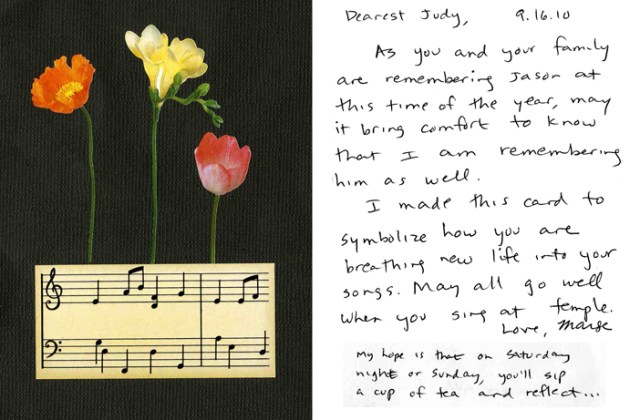 Dearest Judy, 9.16.10
As you and your family
are remembering Jason at
this time of the year, may
it bring comfort to know
that I am remembering
him as well.
I made this card to
symbolize how you are
breathing new life into your
songs. May all go well
when you sing at temple.
Love, Marge
My hope is that on Saturday
night or Sunday, you'll sip
a cup of tea and reflect...